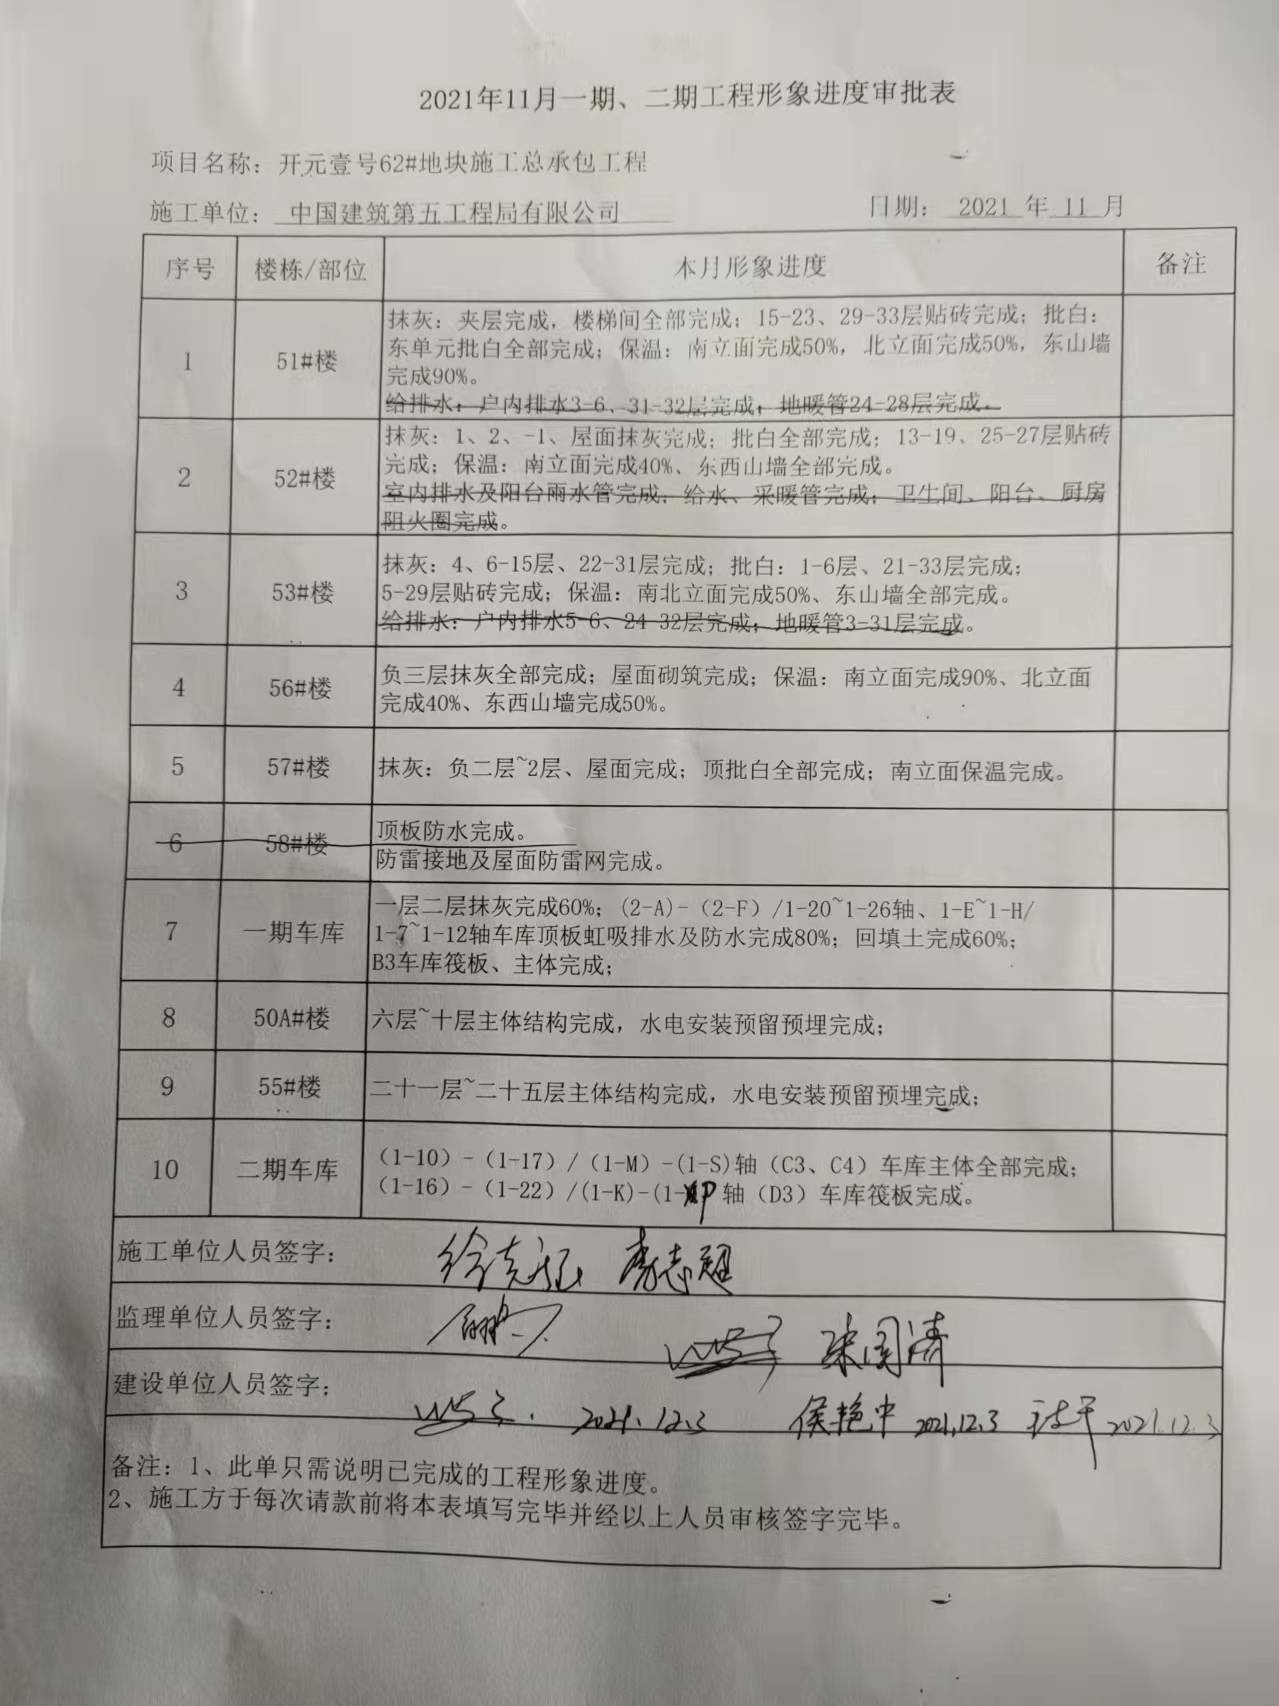 2021年11月一期、二期工程形象进度审批表
项目名称：开元壹号62#地块施工总承包工程
施工单位： 中国建筑第五工程局有限公司 日期： 2021 年 11 月
序号 楼栋/部位 本月形象进度 备注
1 51#楼
抹灰：夹层完成，楼梯间全部完成；15-23、29-33层贴砖完成；批白：
东单元批白全部完成；保温：南立面完成50%，北立面完成50%，东山墙
完成90%。
给排水：户内排水3-6、31-32层完成，地暖管24-28层完成。
2 52#楼
抹灰：1、2、-1、屋面抹灰完成；批白全部完成；13-19、25-27层贴砖
完成；保温：南立面完成40%、东西山墙全部完成。
室内排水及阳台雨水管完成，给水、采暖管完成；卫生间、阳台、厨房
阻火圈完成。
3 53#楼
抹灰：4、6-15层、22-31层完成；批白：1-6层、21-33层完成；
5-29层贴砖完成；保温：南北立面完成50%、东山墙全部完成。
给排水：户内排水5-6、24-32层完成，地暖管3-31层完成。
4 56#楼
负三层抹灰全部完成；屋面砌筑完成；保温：南立面完成90%、北立面
完成40%、东西山墙完成50%。
5 57#楼 抹灰：负二层~2层、屋面完成；顶批白全部完成；南立面保温完成。
6 58#楼
顶板防水完成。
防雷接地及屋面防雷网完成。
7 一期车库
一层二层抹灰完成60%；(2-A)-（2-F）/1-20~1-26轴、1-E~1-H/
1-7~1-12轴车库顶板虹吸排水及防水完成80%；回填土完成60%；
B3车库筏板、主体完成；
8 50A#楼 六层~十层主体结构完成，水电安装预留预埋完成；
9 55#楼 二十一层~二十五层主体结构完成，水电安装预留预埋完成；
10 二期车库
（1-10）-（1-17）/（1-M）-(1-S)轴（C3、C4）车库主体全部完成；
（1-16）-（1-22）/(1-K)-(1-P 轴（D3）车库筏板完成。
施工单位人员签字：
监理单位人员签字：
建设单位人员签字： 2021.12.3 侯艳中 2021.12.3 2021.12.3
备注：1、此单只需说明已完成的工程形象进度。
2、施工方于每次请款前将本表填写完毕并经以上人员审核签字完毕。